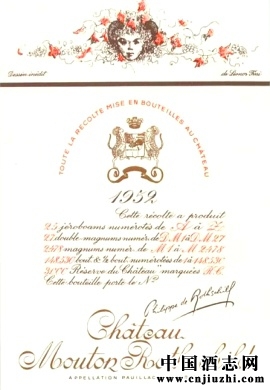 Dessin inédit
de Léonor Fini
TOUTE LA RÉCOLTE MISE EN BOUTEILLES AU CHÂTEAU
1952
Cette récolte a produit
25 jéroboams numérotés de A à Z
27 double-magnums numér. de D.M.1 à D.M 27
magnums numér. de M1 à M
Réserve du Château" marquées R.C.
Cette bouteille porte le No
Philippe de Rothschild
Château
Mouton Rothschild
APPELLATION PAUILLAC
中国酒志网
www.cnjiuzhi.com